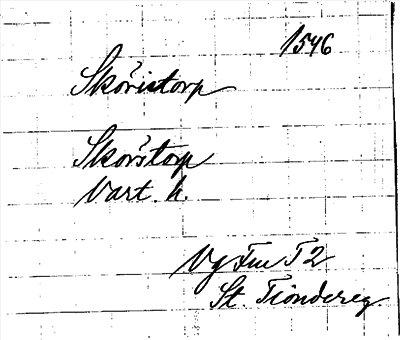 1546
Skőristorp
Skorstorp
Vart. h.
Vg Fm T2
St. Tiondereg.